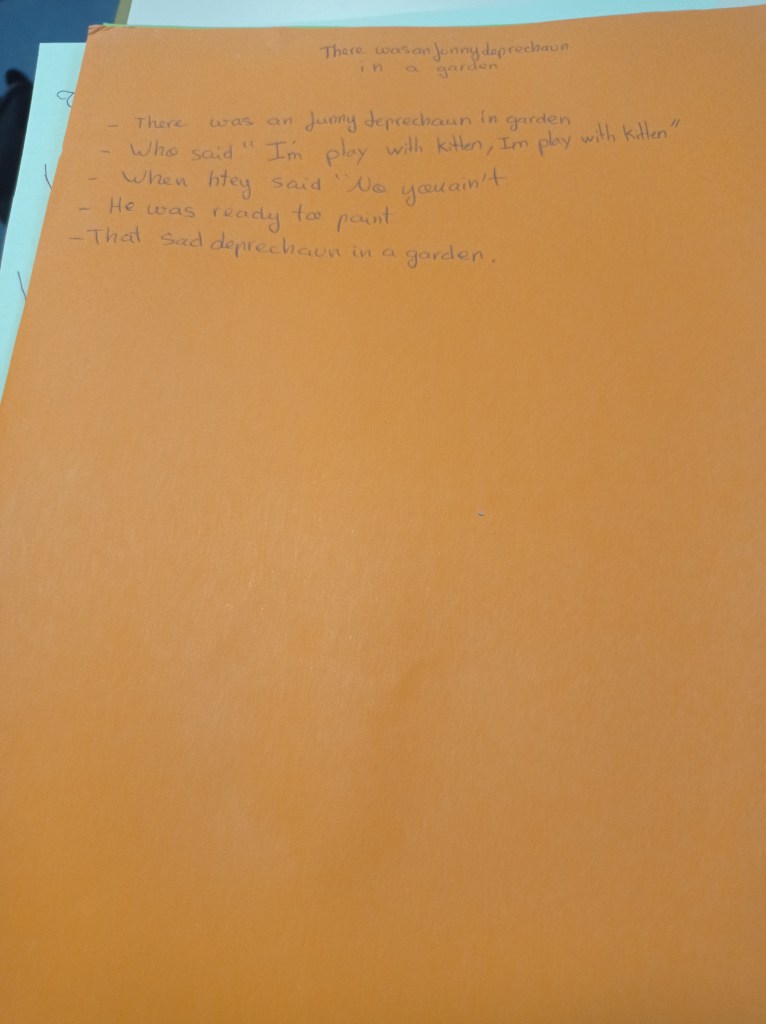 There was an funny deprechaun
in a garden
- There was an funny deprechaun in garden
- Who said " I'm play with kitten, Im play with kitten"
- When htey said "No you ain't
- He was ready too paint
- That sad deprechaun in a garden.